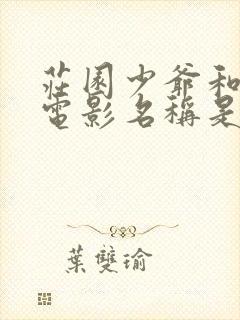 莊園少爺和
電影名稱是
葉雙瑜